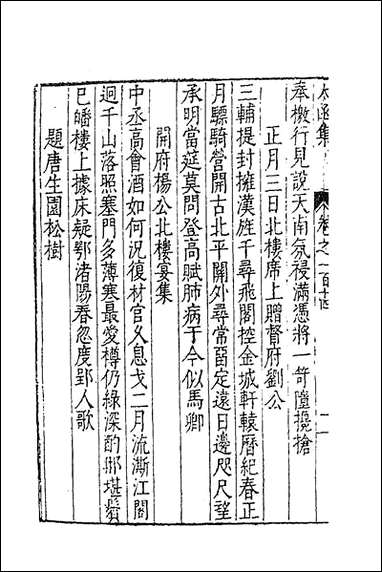 太函集 卷之一百十四 二
奉檄行見說天南氛祲滿憑將一箭墮攙搶
正月三日北樓席上贈督府劉公
三輔提封擁漢旌千尋飛閣控金城軒轅曆紀春正
月驃騎營開古北平關外尋常留定遠日邊咫尺望
承明當筵莫問登高賦肺病于今似馬卿
開府楊公北樓宴集
中丞高會酒如何況復材官又息戈二月流澌江閣
迥千山落照塞門多薄寒最愛樽仍綠深酌那堪鬢
已皤樓上據床疑鄂渚陽春忽度郢人歌
題唐生園松樹